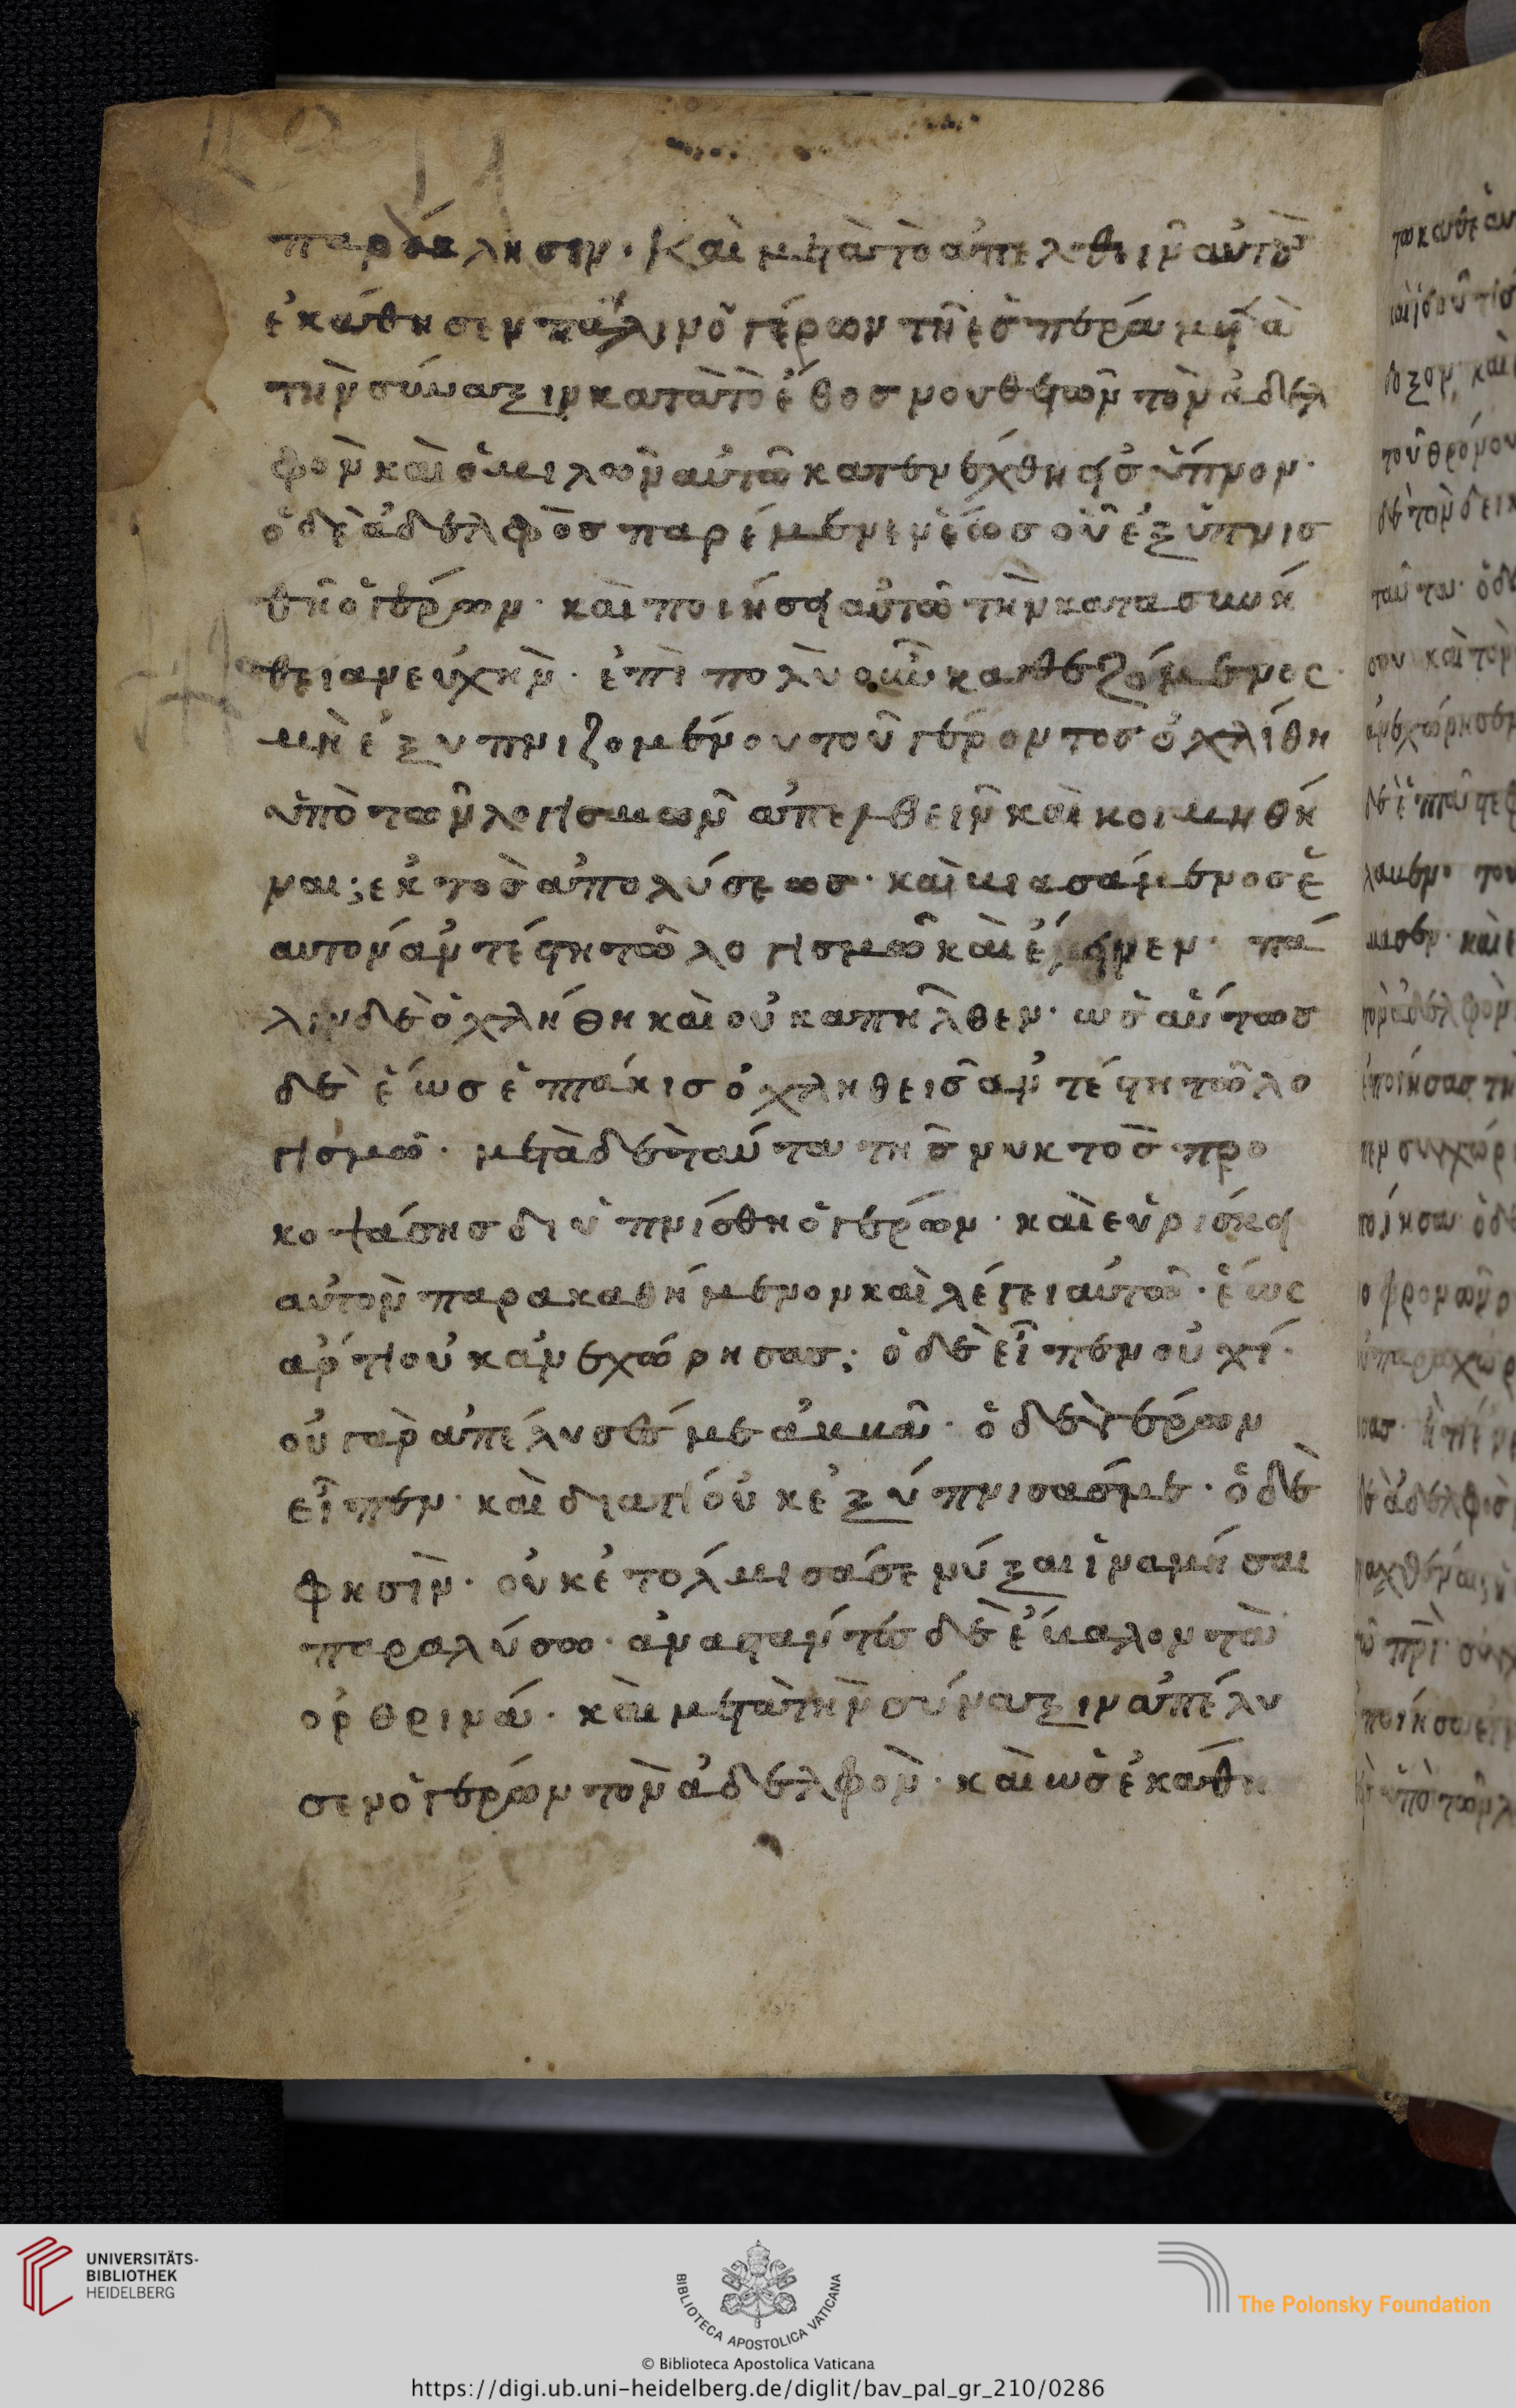 παράκλησιν. Καὶ μετὰ τὸ ἀπελθεῖν αὐτοὺς
ἐκάθησεν πάλιν ὁ γέρων τῆ ἑσπέρα μετὰ
τὴν σύναξιν κατὰ τὸ ἔθος νουθετῶν τὸν ἀδελ
φὸν καὶ ὁμιλῶν αὐτῶ κατενέχθη εἰς ὕπνον·
ὁ δὲ ἀδελφὸς παρέμενεν ἕως οὗ ἐξυπνισ
θῆ ὁ γέρων· καὶ ποιήσει αὐτῶ τὴν κατὰ συνή
θειαν εὐχὴν· ἐπὶ πολὺ οὖν καθεζόμενος
μὴ ἐξυπνιζομένου τοῦ γέροντος ὀχλίθη
ὑπὸ τῶν λογισμῶν ἀπελθεῖν καὶ κοιμηθῆ
ναι; ἐκτὸς ἀπολύσεως· καὶ βιασάμενος ἑ
αυτὸν ἀντέστη τῶ λογισμῶ καὶ ἔμεινεν· πά
λιν δὲ ὀχλήθη καὶ οὐκ ἀπῆλθεν· ὡσαύτως
δὲ ἕως ἑπτάκις ὀχληθεὶς ἀντέστη τῶ λο
γισμῶ· μετὰ δὲ ταῦτα τῆς νυκτὸς προ
κοψάσης διυπνίσθη ὁ γέρων· καὶ εὑρίσκει
αὐτὸν παρακαθήμενον καὶ λέγει αὐτῶ· ἕως
ἄρτι οὐκ ἀνεχώρησας; ὁ δὲ εἶπεν οὐχί·
οὐ γὰρ ἀπέλυσές με ἀββᾶ· ὁ δὲ γέρων
εἶπεν· καὶ διατί οὐκ ἐξύπνισάς με· ὁ δέ
φησὶν· οὐκ ἐτόλμισά σε νύξαι ἵνα μή σαι
παραλύσω· ἀναστάντες δὲ ἔβαλον τὰ
ὀρθρινά· καὶ μετὰ τὴν σύναξιν ἀπέλυ
σεν ὁ γέρων τὸν ἀδελφὸν· καὶ ὡς ἐκάθη
UNIVERSITÄTS-
BIBLIOTHEK
HEIDELBERG
BIBLIOTECA APOSTOLICA VATICANA
The Polonsky Foundation
© Biblioteca Apostolica Vaticana
https://digi.ub.uni-heidelberg.de/diglit/bav_pal_gr_210/0286